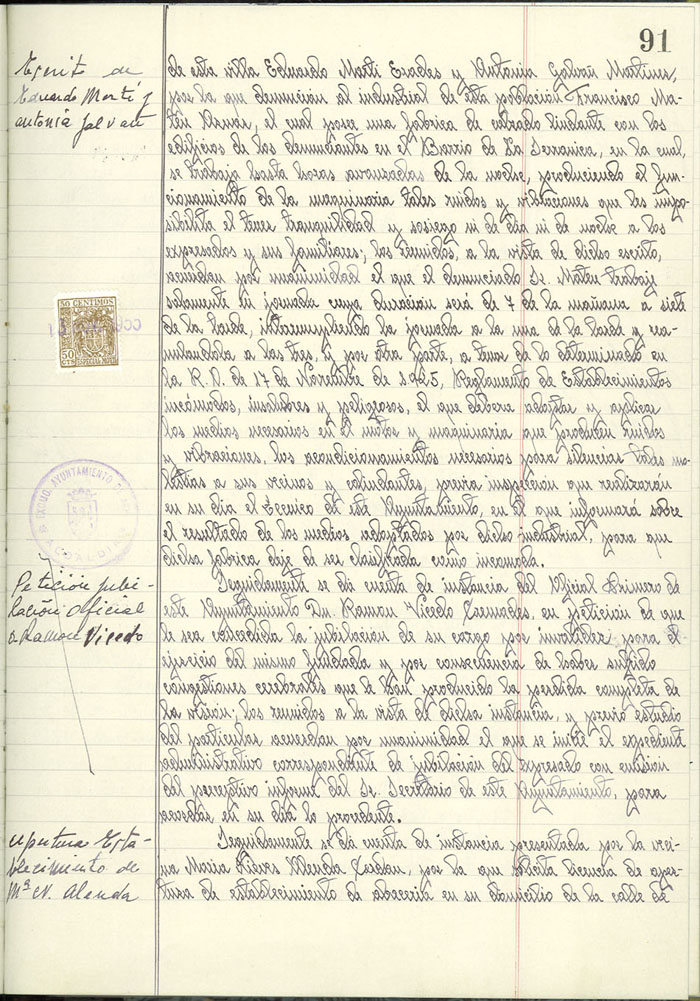 91
Escrito de
Eduardo Martí y
Antonia Galvañ
de esta villa Eduardo Martí Erades y Antonia Galvañ Martines,
por la que denuncian al industrial de esta población Francisco Ma-
teu, el cual posee una fabrica de calzado lindante con los
edificios de los denunciantes en el Barrio de La Serranica, en la cual,
se trabaja hasta horas avanzadas de la noche, produciendo el fun-
cionamiento de la maquinaria tales ruidos y vibraciones que les impo-
sibilita el tener tranquilidad y sosiego ni de dia ni de noche a los
expresados y sus familiares; los reunidos, a la vista de dicho escrito,
acuerdan por unanimidad el que el denunciado Sr. Mateu trabaje
solamente la jornada cuya duracion será de 7 de la mañana a siete
de la tarde, interrumpiendo la jornada a la una de la tarde y rea-
nudandola a las tres, y por otra parte, a tenor de lo determinado en
la R.O. de 17 de Novienbre de 1.925, Reglamento de Establecimientos
incómodos, insalubres y peligrosos, el que debera adoptar y aplicar
los medios necesarios en el motor y maquinaria que producen ruidos
y vibraciones, los acondicionamientos necesarios para silenciar tales mo-
lestias a sus vecinos y colindantes, previa inspeccion que realizarán
en su dia el Tecnico de este Ayuntamiento, en el que informará sobre
el resultado de los medios adoptados por dicho industrial, para que
dicha fabrica deje de ser clasificada como incomoda.
50 CENTIMOS
50 CTS
ESPECIAL MOVIL
AYUNTAMIENTO
ALCALDIA
Petición jubi-
lación Oficial
D. Ramon Vicedo
Seguidamente se dá cuenta de instancia del Oficial Primero de
este Ayuntamiento Dn. Ramon Vicedo Cremades, en peticion de que
le sea concedida la jubilacion de su cargo por invalidez para el
ejercicio del mismo fundada y por consecuencia de haber sufrido
congestiones cerebrales que le han producido la perdida completa de
la vision; los reunidos a la vista de dicha instancia, y previo estudio
del particular acuerdan por unanimidad el que se inicie el expediente
administrativo correspondiente de jubilacion del expresado con emision
del preceptivo informe del Sr. Secretario de este Ayuntamiento, para
acordar en su dia lo procedente.
Apertura Esta-
blecimiento de
Mª N. Alenda
Seguidamente se dá cuenta de instancia presentada por la veci-
na Maria Nieves Alenda, por la que solicita licencia de aper-
tura de establecimiento de abaceria en su domicilio de la calle de